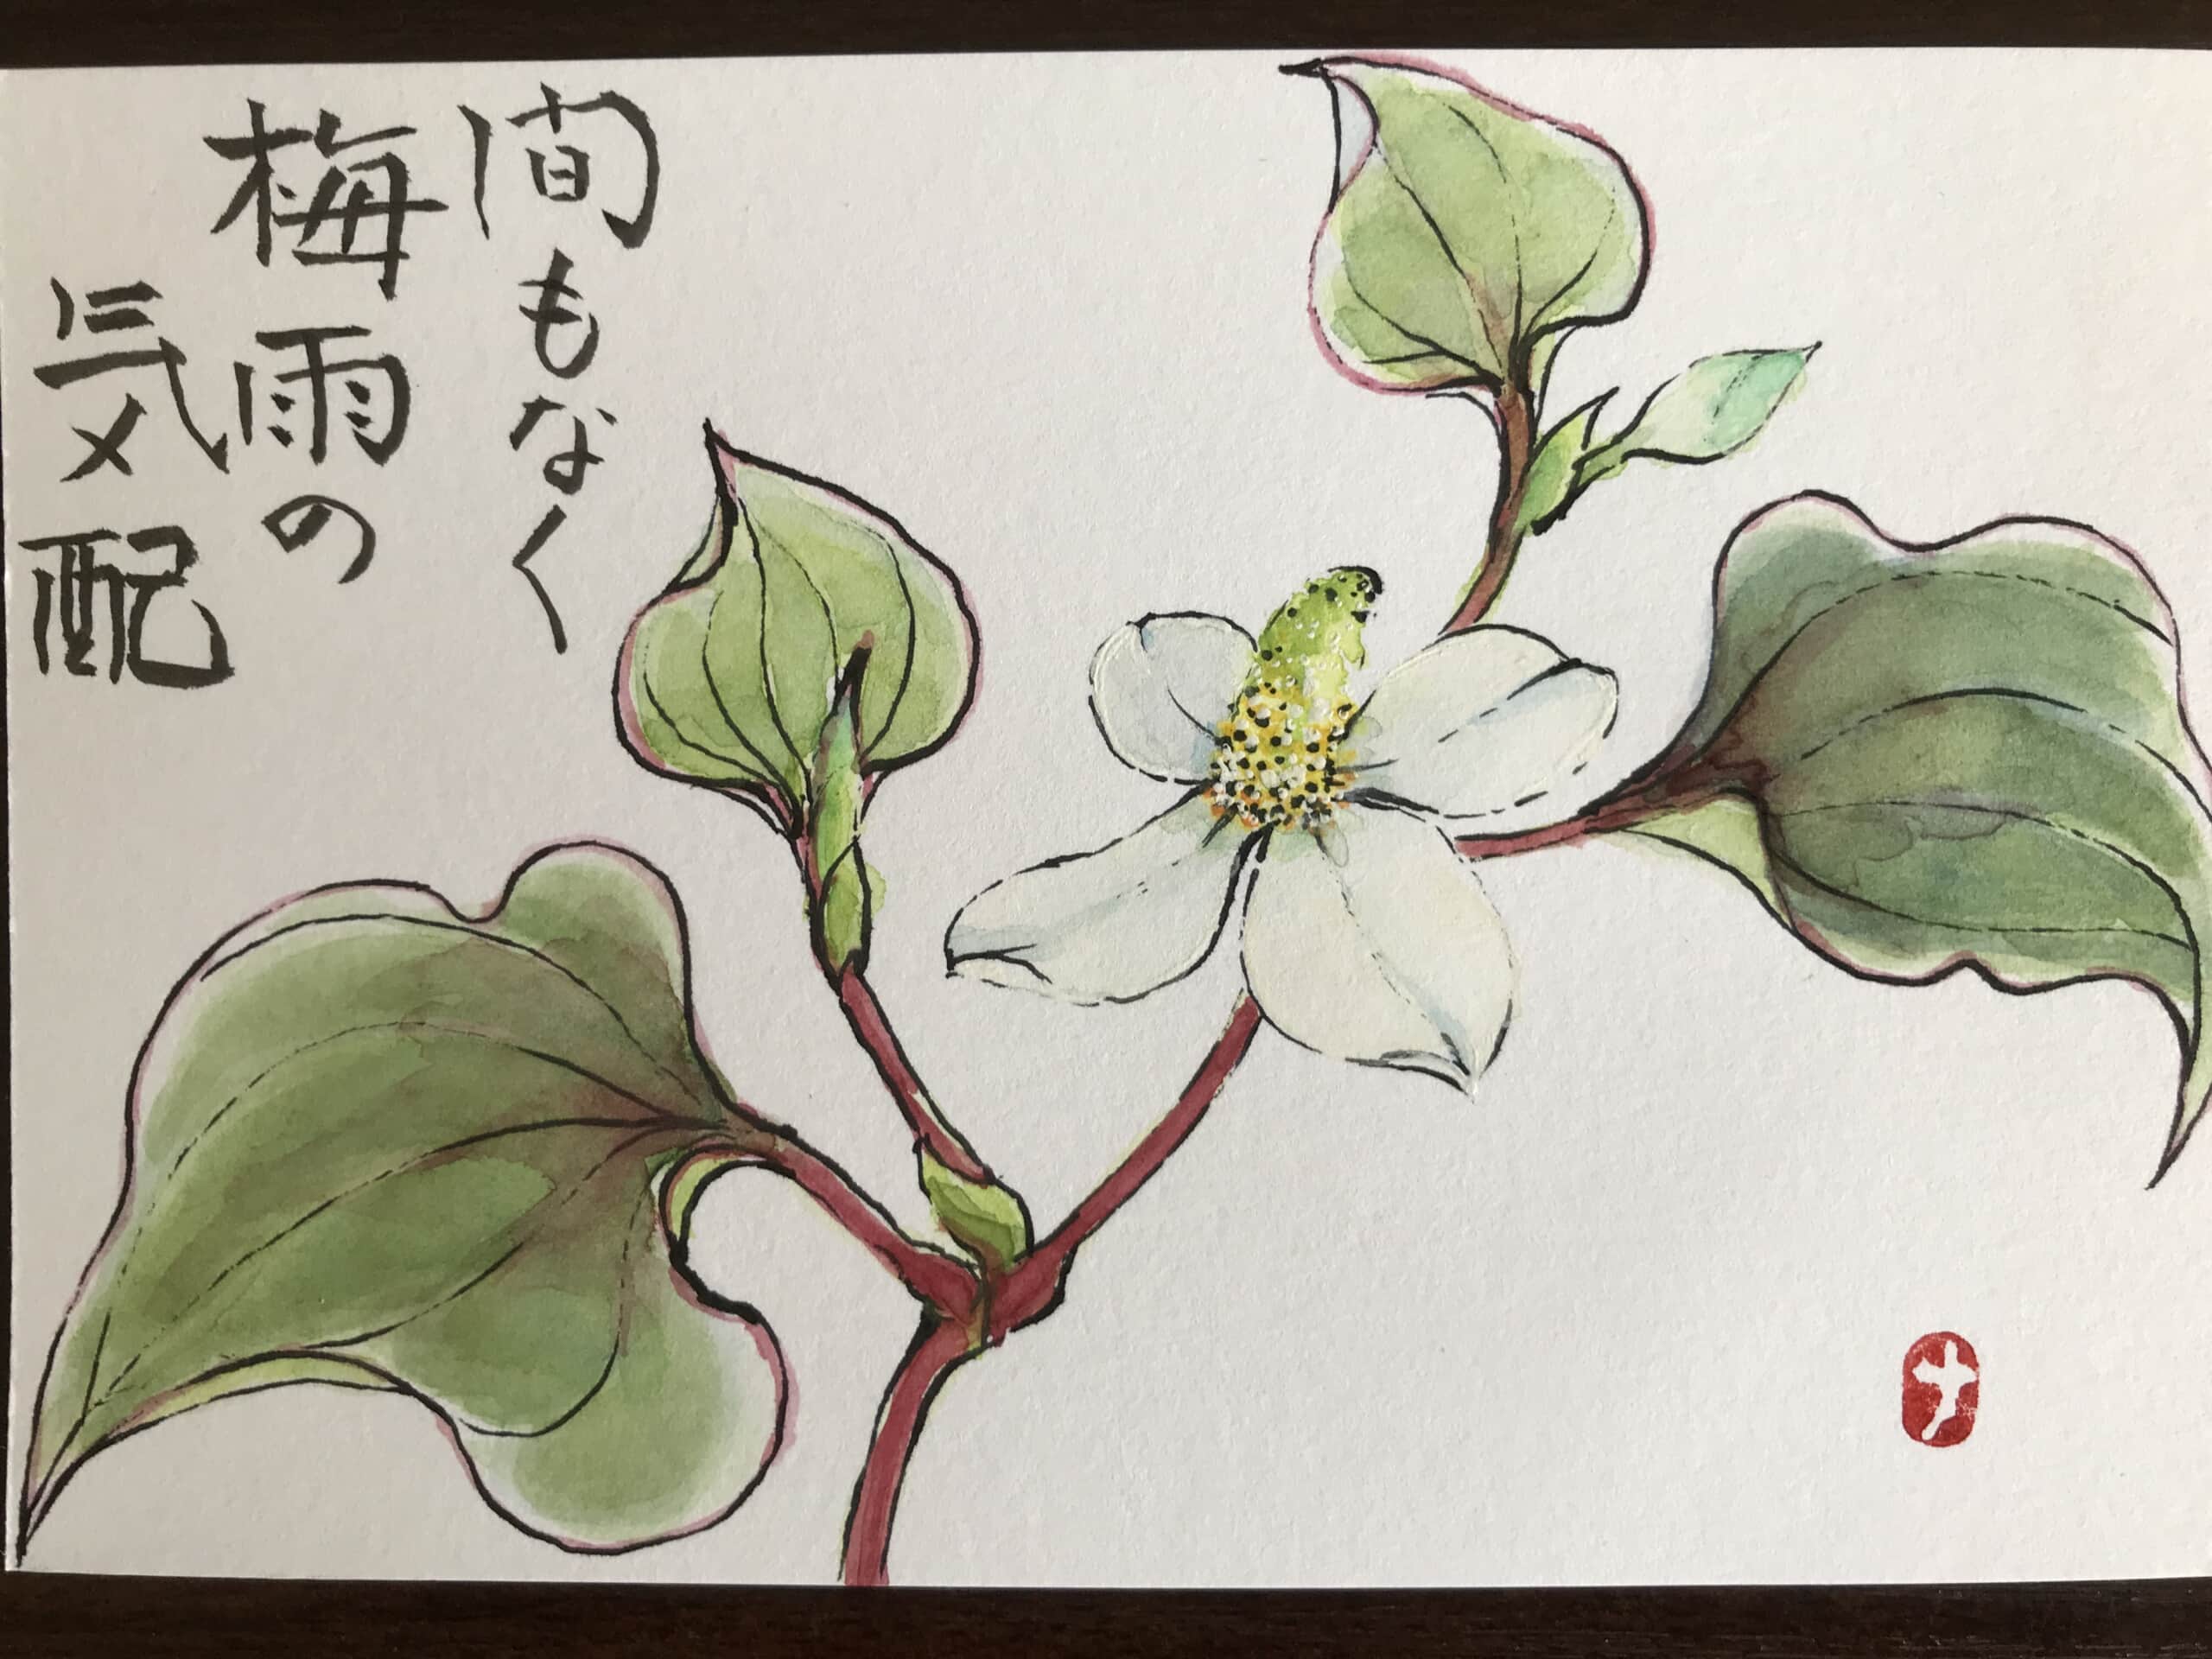 間もなく
梅雨の
気配
ナ